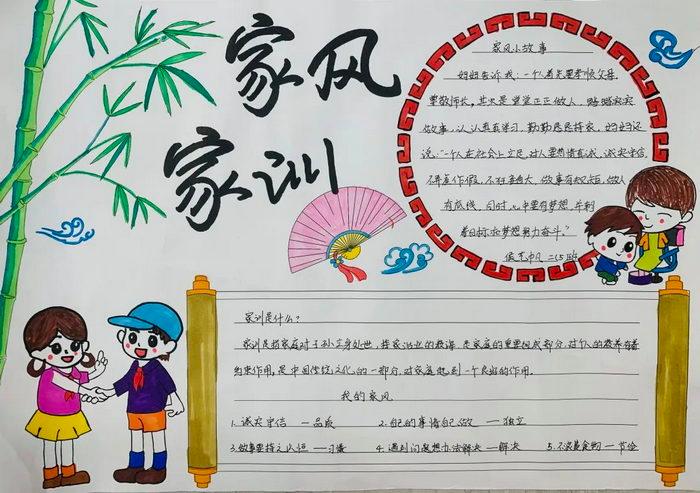 家风
家训
家风小故事
妈妈告诉我：一个人首先要孝顺父母，
尊敬师长，其次是堂堂正正做人，踏踏实实
做事，认认真真学习，勤勤恳恳持家，妈妈还
说："一个人在社会上立足，对人要热情真诚，诚实守信，
不弄虚作假，不狂妄自大，做事有知短，做人
有底线，同时心中要有梦想，并利
着目标和梦想努力奋斗。"
二（5）班
家训是什么？
家训是指家庭对子孙立身处世，持家治业的教诲，是家庭的重要组成部分，对个人的教养有着
约束作用，是中国传统文化的一部分，对家庭起到一个良好的作用。
我的家风
1.诚实守信 — 品质 2.自己的事情自己做 — 独立
3.做事要持之以恒 — 习惯 4.遇到问题想办法解决 — 解决 5.不浪费食物 — 节俭